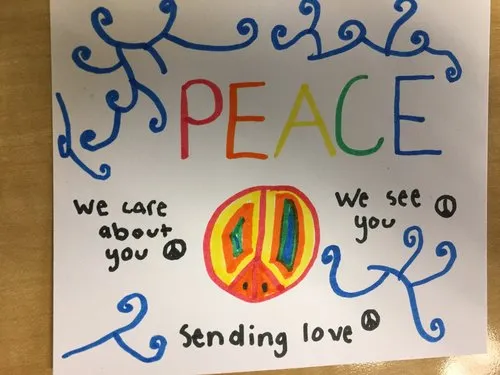 PEACE
We care
about
you
We see
you
Sending love